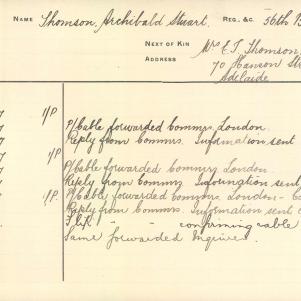 NAME Thomson, Archibald Stuart. REG., &C. 56th B
NEXT OF KIN Mrs E. T. Thomson,
ADDRESS 70 Hanson Str
Adelaide
1/P P/Cable forwarded Commrs, London.
Reply from Commrs. Information sent
1/P
P/Cable forwarded Commrs London.
Reply from Commrs. Information sent
1/P. P/Cable forwarded Commrs, London - C
Reply from Commrs. Information sent
confirming cable
Same forwarded Enquirer.